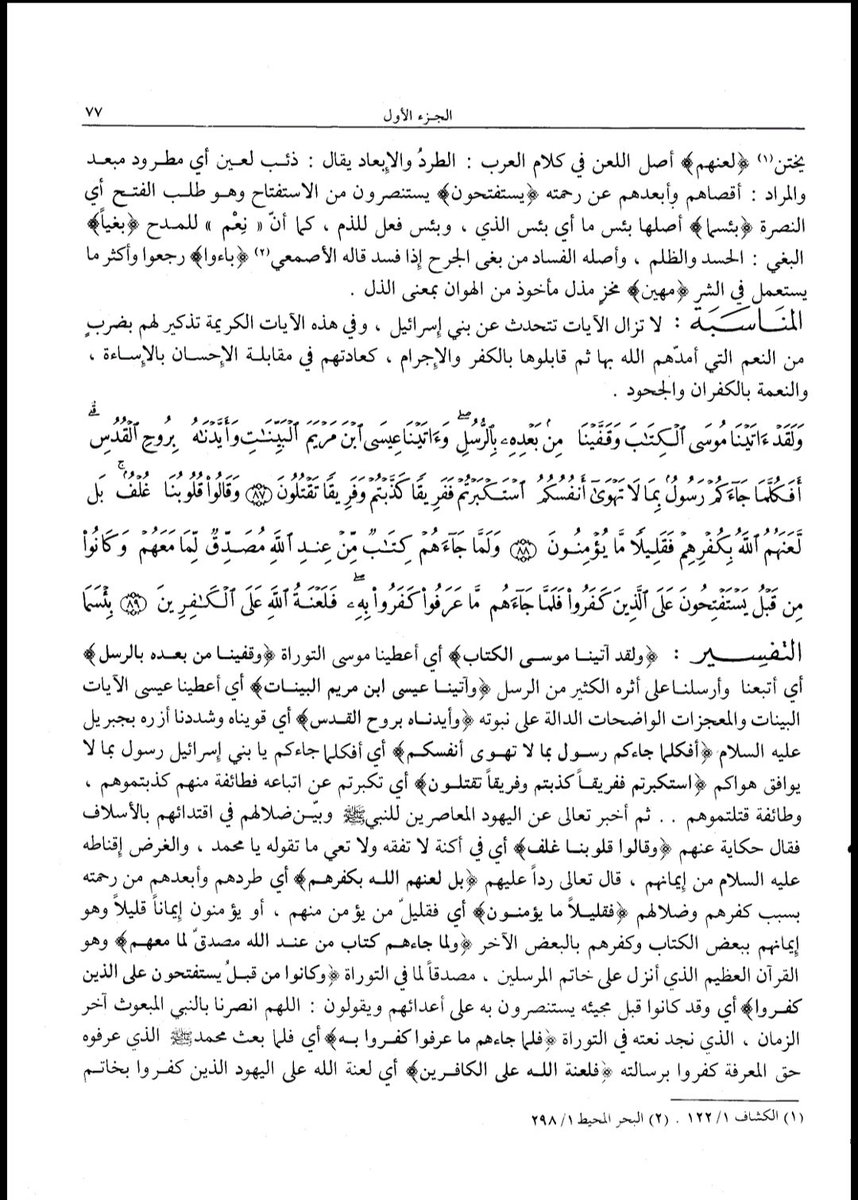 الجزء الأول ٧٧
يختن(١) ﴿لعنهم﴾ أصل اللعن في كلام العرب : الطردُ والإبعاد يقال : ذئب لعين أي مطرود مبعد
والمراد : أقصاهم وأبعدهم عن رحمته ﴿يستفتحون﴾ يستنصرون من الاستفتاح وهو طلب الفتح أي
النصرة ﴿بئسما﴾ أصلها بئس ما أي بئس الذي ، وبئس فعل للذم ، كما أنّ « نِعْم » للمدح ﴿بغياً﴾
البغي : الحسد والظلم ، وأصله الفساد من بغى الجرح إذا فسد قاله الأصمعي(٢) ﴿باءوا﴾ رجعوا وأكثر ما
يستعمل في الشر ﴿مهين﴾ مخزٍ مذل مأخوذ من الهوان بمعنى الذل .
المنَاسَبَة : لا تزال الآيات تتحدث عن بني إسرائيل ، وفي هذه الآيات الكريمة تذكير لهم بضربٍ
من النعم التي أمدّهم الله بها ثم قابلوها بالكفر والإجرام ، كعادتهم في مقابلة الإحسان بالإساءة ،
والنعمة بالكفران والجحود .
وَلَقَدْ ءَاتَيْنَا مُوسَى ٱلْكِتَٰبَ وَقَفَّيْنَا مِنۢ بَعْدِهِۦ بِٱلرُّسُلِۖ وَءَاتَيْنَا عِيسَى ٱبْنَ مَرْيَمَ ٱلْبَيِّنَٰتِ وَأَيَّدْنَٰهُ بِرُوحِ ٱلْقُدُسِۗ
أَفَكُلَّمَا جَآءَكُمْ رَسُولُۢ بِمَا لَا تَهْوَىٰٓ أَنفُسُكُمُ ٱسْتَكْبَرْتُمْ فَفَرِيقًا كَذَّبْتُمْ وَفَرِيقًا تَقْتُلُونَ ٨٧ وَقَالُوا۟ قُلُوبُنَا غُلْفٌۢۚ بَل
لَّعَنَهُمُ ٱللَّهُ بِكُفْرِهِمْ فَقَلِيلًا مَّا يُؤْمِنُونَ ٨٨ وَلَمَّا جَآءَهُمْ كِتَٰبٌ مِّنْ عِندِ ٱللَّهِ مُصَدِّقٌ لِّمَا مَعَهُمْ وَكَانُوا۟
مِن قَبْلُ يَسْتَفْتِحُونَ عَلَى ٱلَّذِينَ كَفَرُوا۟ فَلَمَّا جَآءَهُم مَّا عَرَفُوا۟ كَفَرُوا۟ بِهِۦۖ فَلَعْنَةُ ٱللَّهِ عَلَى ٱلْكَٰفِرِينَ ٨٩ بِئْسَمَا
التفسير : ﴿ولقد آتينا موسى الكتاب﴾ أي أعطينا موسى التوراة ﴿وقفينا من بعده بالرسل﴾
أي أتبعنا وأرسلنا على أثره الكثير من الرسل ﴿وآتينا عيسى ابن مريم البينات﴾ أي أعطينا عيسى الآيات
البينات والمعجزات الواضحات الدالة على نبوته ﴿وأيدناه بروح القدس﴾ أي قويناه وشددنا أزره بجبريل
عليه السلام ﴿أفكلما جاءكم رسول بما لا تهوى أنفسكم﴾ أي أفكلما جاءكم يا بني إسرائيل رسول بما لا
يوافق هواكم ﴿استكبرتم ففريقاً كذبتم وفريقاً تقتلون﴾ أي تكبرتم عن اتباعه فطائفة منهم كذبتموهم ،
وطائفة قتلتموهم . . ثم أخبر تعالى عن اليهود المعاصرين للنبي ﷺ وبيّن ضلالهم في اقتدائهم بالأسلاف
فقال حكاية عنهم ﴿وقالوا قلوبنا غلف﴾ أي في أكنة لا تفقه ولا تعي ما تقوله يا محمد ، والغرض إقناطه
عليه السلام من إيمانهم ، قال تعالى رداً عليهم ﴿بل لعنهم الله بكفرهم﴾ أي طردهم وأبعدهم من رحمته
بسبب كفرهم وضلالهم ﴿فقليلاً ما يؤمنون﴾ أي فقليلٌ من يؤمن منهم ، أو يؤمنون إيماناً قليلاً وهو
إيمانهم ببعض الكتاب وكفرهم بالبعض الآخر ﴿ولما جاءهم كتاب من عند الله مصدقٌ لما معهم﴾ وهو
القرآن العظيم الذي أنزل على خاتم المرسلين ، مصدقاً لما في التوراة ﴿وكانوا من قبلُ يستفتحون على الذين
كفروا﴾ أي وقد كانوا قبل مجيئه يستنصرون به على أعدائهم ويقولون : اللهم انصرنا بالنبي المبعوث آخر
الزمان ، الذي نجد نعته في التوراة ﴿فلما جاءهم ما عرفوا كفروا به﴾ أي فلما بعث محمد ﷺ الذي عرفوه
حق المعرفة كفروا برسالته ﴿فلعنة الله على الكافرين﴾ أي لعنة الله على اليهود الذين كفروا بخاتم
(١) الكشاف ١/ ١٢٢ . (٢) البحر المحيط ١/ ٢٩٨